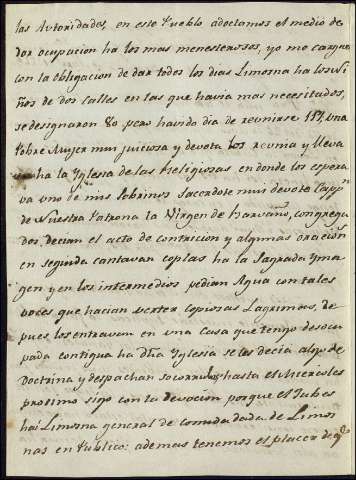 las Autoridades, en este Pueblo adoctamos el medio de
dar ocupacion ha los mas menesterosos, yo me cargue
con la obligacion de dar todos los dias Limosna ha los Ni
ños de dos calles en las que havia mas necesitados,
se designaron 80 pero havido dia de reunirse 117, una
Pobre Mujer mui juiciosa y devota los reunia y lleva
ha la Yglesia de las Religiosas en donde los espera
va uno de mis sobrinos Sacerdote mui devoto Capp.n
de Nuestra Patrona la Virgen de congrega
dos, decian el acto de contricion y algunas oracion.s
en seguida cantavan coplas ha la Sagrada Yma
gen y en los intermedios pedian Agua con tales
voces que hacian verter copiosas Lagrimas, de
pues los entravan en una Casa que tengo desocu
pada contigua ha Dha Yglesia se les decia algo de
Doctrina y despachan hasta el Miercoles
proximo sigo con la devocion porque el Jubes
hai Limosna general de comida dada de Limos
nas en Publico: ademas tenemos el placer de q.e